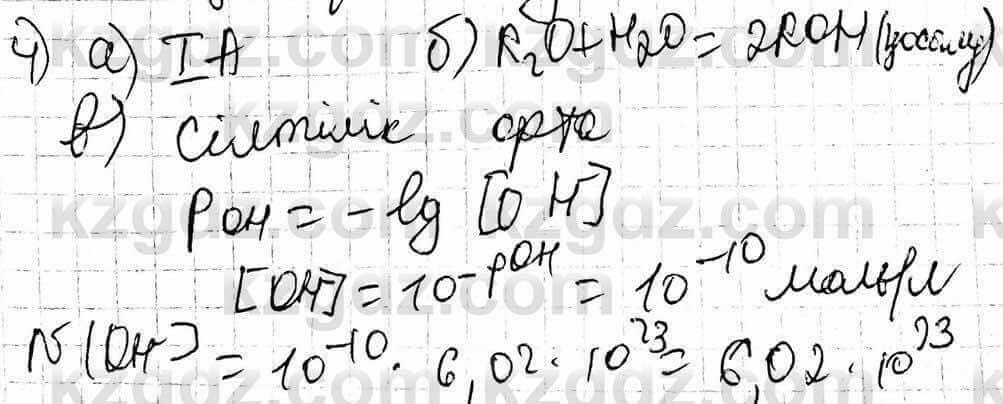 4) а) IA б) R₂O+H₂O = 2ROH (қосылу)
в) сілтілік орта
pOH = -lg [OH]
[OH] = 10^-pOH = 10^-10 моль/л
N(OH) = 10^-10 · 6,02 · 10^23 = 6,02 · 10^13